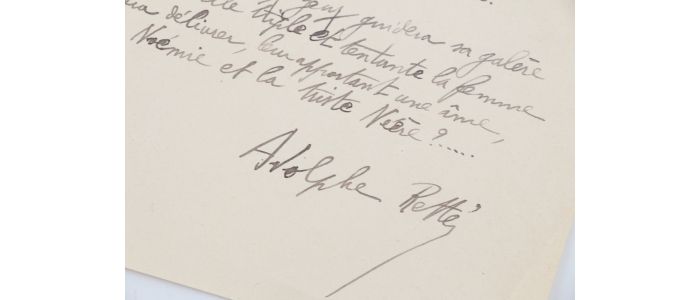 jeux guidera sa galère
triple et tentante la femme
délivrer, leur apportant une âme,
Noémie et la triste Néère ?.....
Adolphe Retté